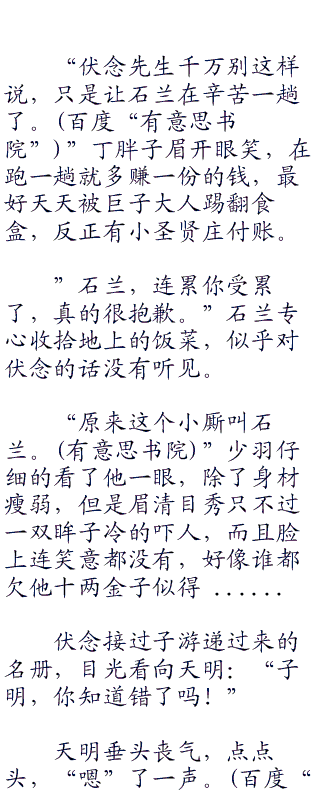 “伏念先生千万别这样
说，只是让石兰在辛苦一趟
了。(百度“有意思书
院”)”丁胖子眉开眼笑，在
跑一趟就多赚一份的钱，最
好天天被巨子大人踢翻食
盒，反正有小圣贤庄付账。
”石兰，连累你受累
了，真的很抱歉。”石兰专
心收拾地上的饭菜，似乎对
伏念的话没有听见。
“原来这个小厮叫石
兰。(有意思书院)”少羽仔
细的看了他一眼，除了身材
瘦弱，但是眉清目秀只不过
一双眸子冷的吓人，而且脸
上连笑意都没有，好像谁都
欠他十两金子似得 ......
伏念接过子游递过来的
名册，目光看向天明：“子
明，你知道错了吗！”
天明垂头丧气，点点
头，“嗯”了一声。(百度“